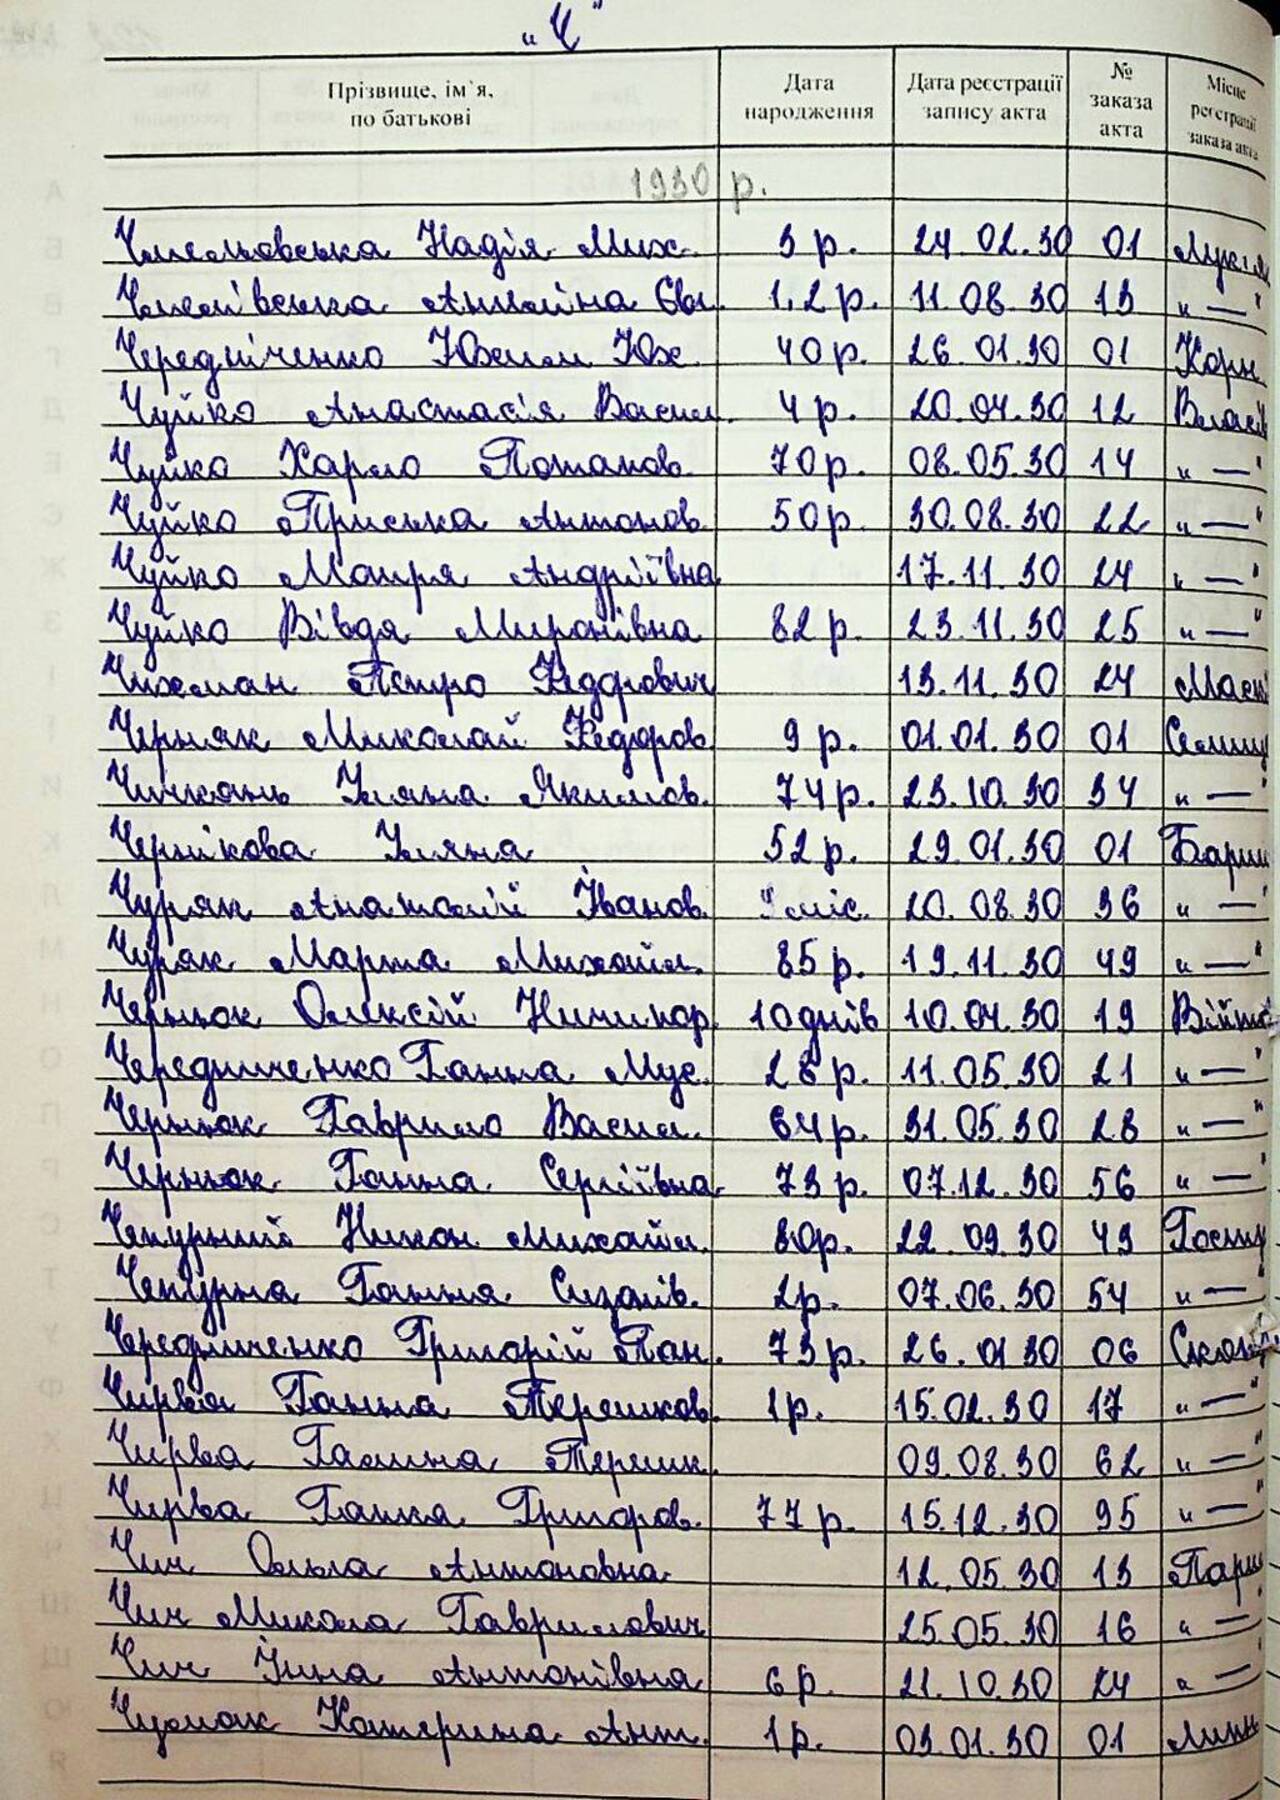 „Ч"
Прізвище, ім`я, по батькові Дата народження Дата реєстрації запису акта № заказа акта Місце реєстрації заказа акта
1930 р.
Надія Мих. 3 р. 24.02.30 01
Єв. 1,2 р. 11.08.30 13 „—"
Чередніченко Юх 40 р. 26.01.30 01 Корн
Чуйко Анастасія Васил. 4 р. 20.04.30 12 Власів
Чуйко Харло Потапов. 70 р. 08.05.30 14 „—"
Чуйко Приська Антонов. 50 р. 30.08.30 22 „—"
Чуйко Мотря Андріївна 17.11.30 24 „—"
Чуйко Вівдя Миронівна 82 р. 23.11.30 25 „—"
Чихман Петро Федорович 13.11.30 24
Черняк Миколай Федоров. 9 р. 01.01.30 01
Чичкань Уляна Якимов. 74 р. 23.10.30 34 „—"
Чернікова Уляна 52 р. 29.01.30 01 Бариш
Чуряк Анатолій Іванов. міс. 20.08.30 36 „—"
Чуряк Марта Михайл. 85 р. 19.11.30 49 „—"
Чернюк Олексій Ничипор. 10 днів 10.04.30 19 Війто
Чередниченко Ганна Мус. 28 р. 11.05.30 21 „—"
Чернюк Гаврило Васил. 64 р. 31.05.30 28 „—"
Чернюк Ганна Сергіївна 73 р. 07.12.30 56 „—"
Чепурний Никон Михайл. 80 р. 22.09.30 43
Чепурна Ганна Сизонів. 2 р. 07.06.30 54 „—"
Чередниченко Григорій Пан. 73 р. 26.01.30 06
Чирва Ганна Терешков. 1 р. 15.02.30 17 „—"
Чирва Галина Терешк. 09.08.30 62 „—"
Чирва Ганна Григоров. 77 р. 15.12.30 95 „—"
Чич Ольга Антоновна 12.05.30 13 Пари
Чич Микола Гаврилович 25.05.30 16 „—"
Чич Інна Антонівна 6 р. 21.10.30 24 „—"
Чумак Катерина Ант. 1 р. 03.01.30 01